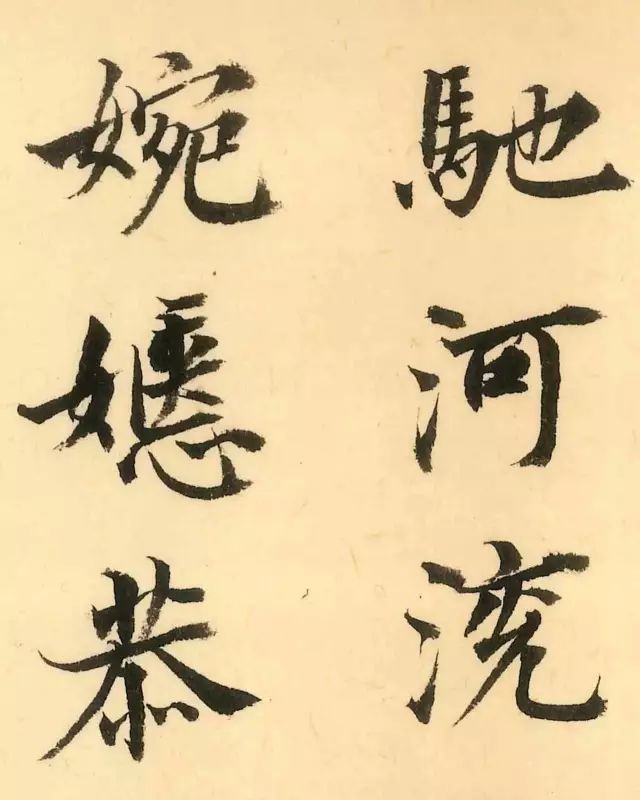 馳河流
婉嫕恭